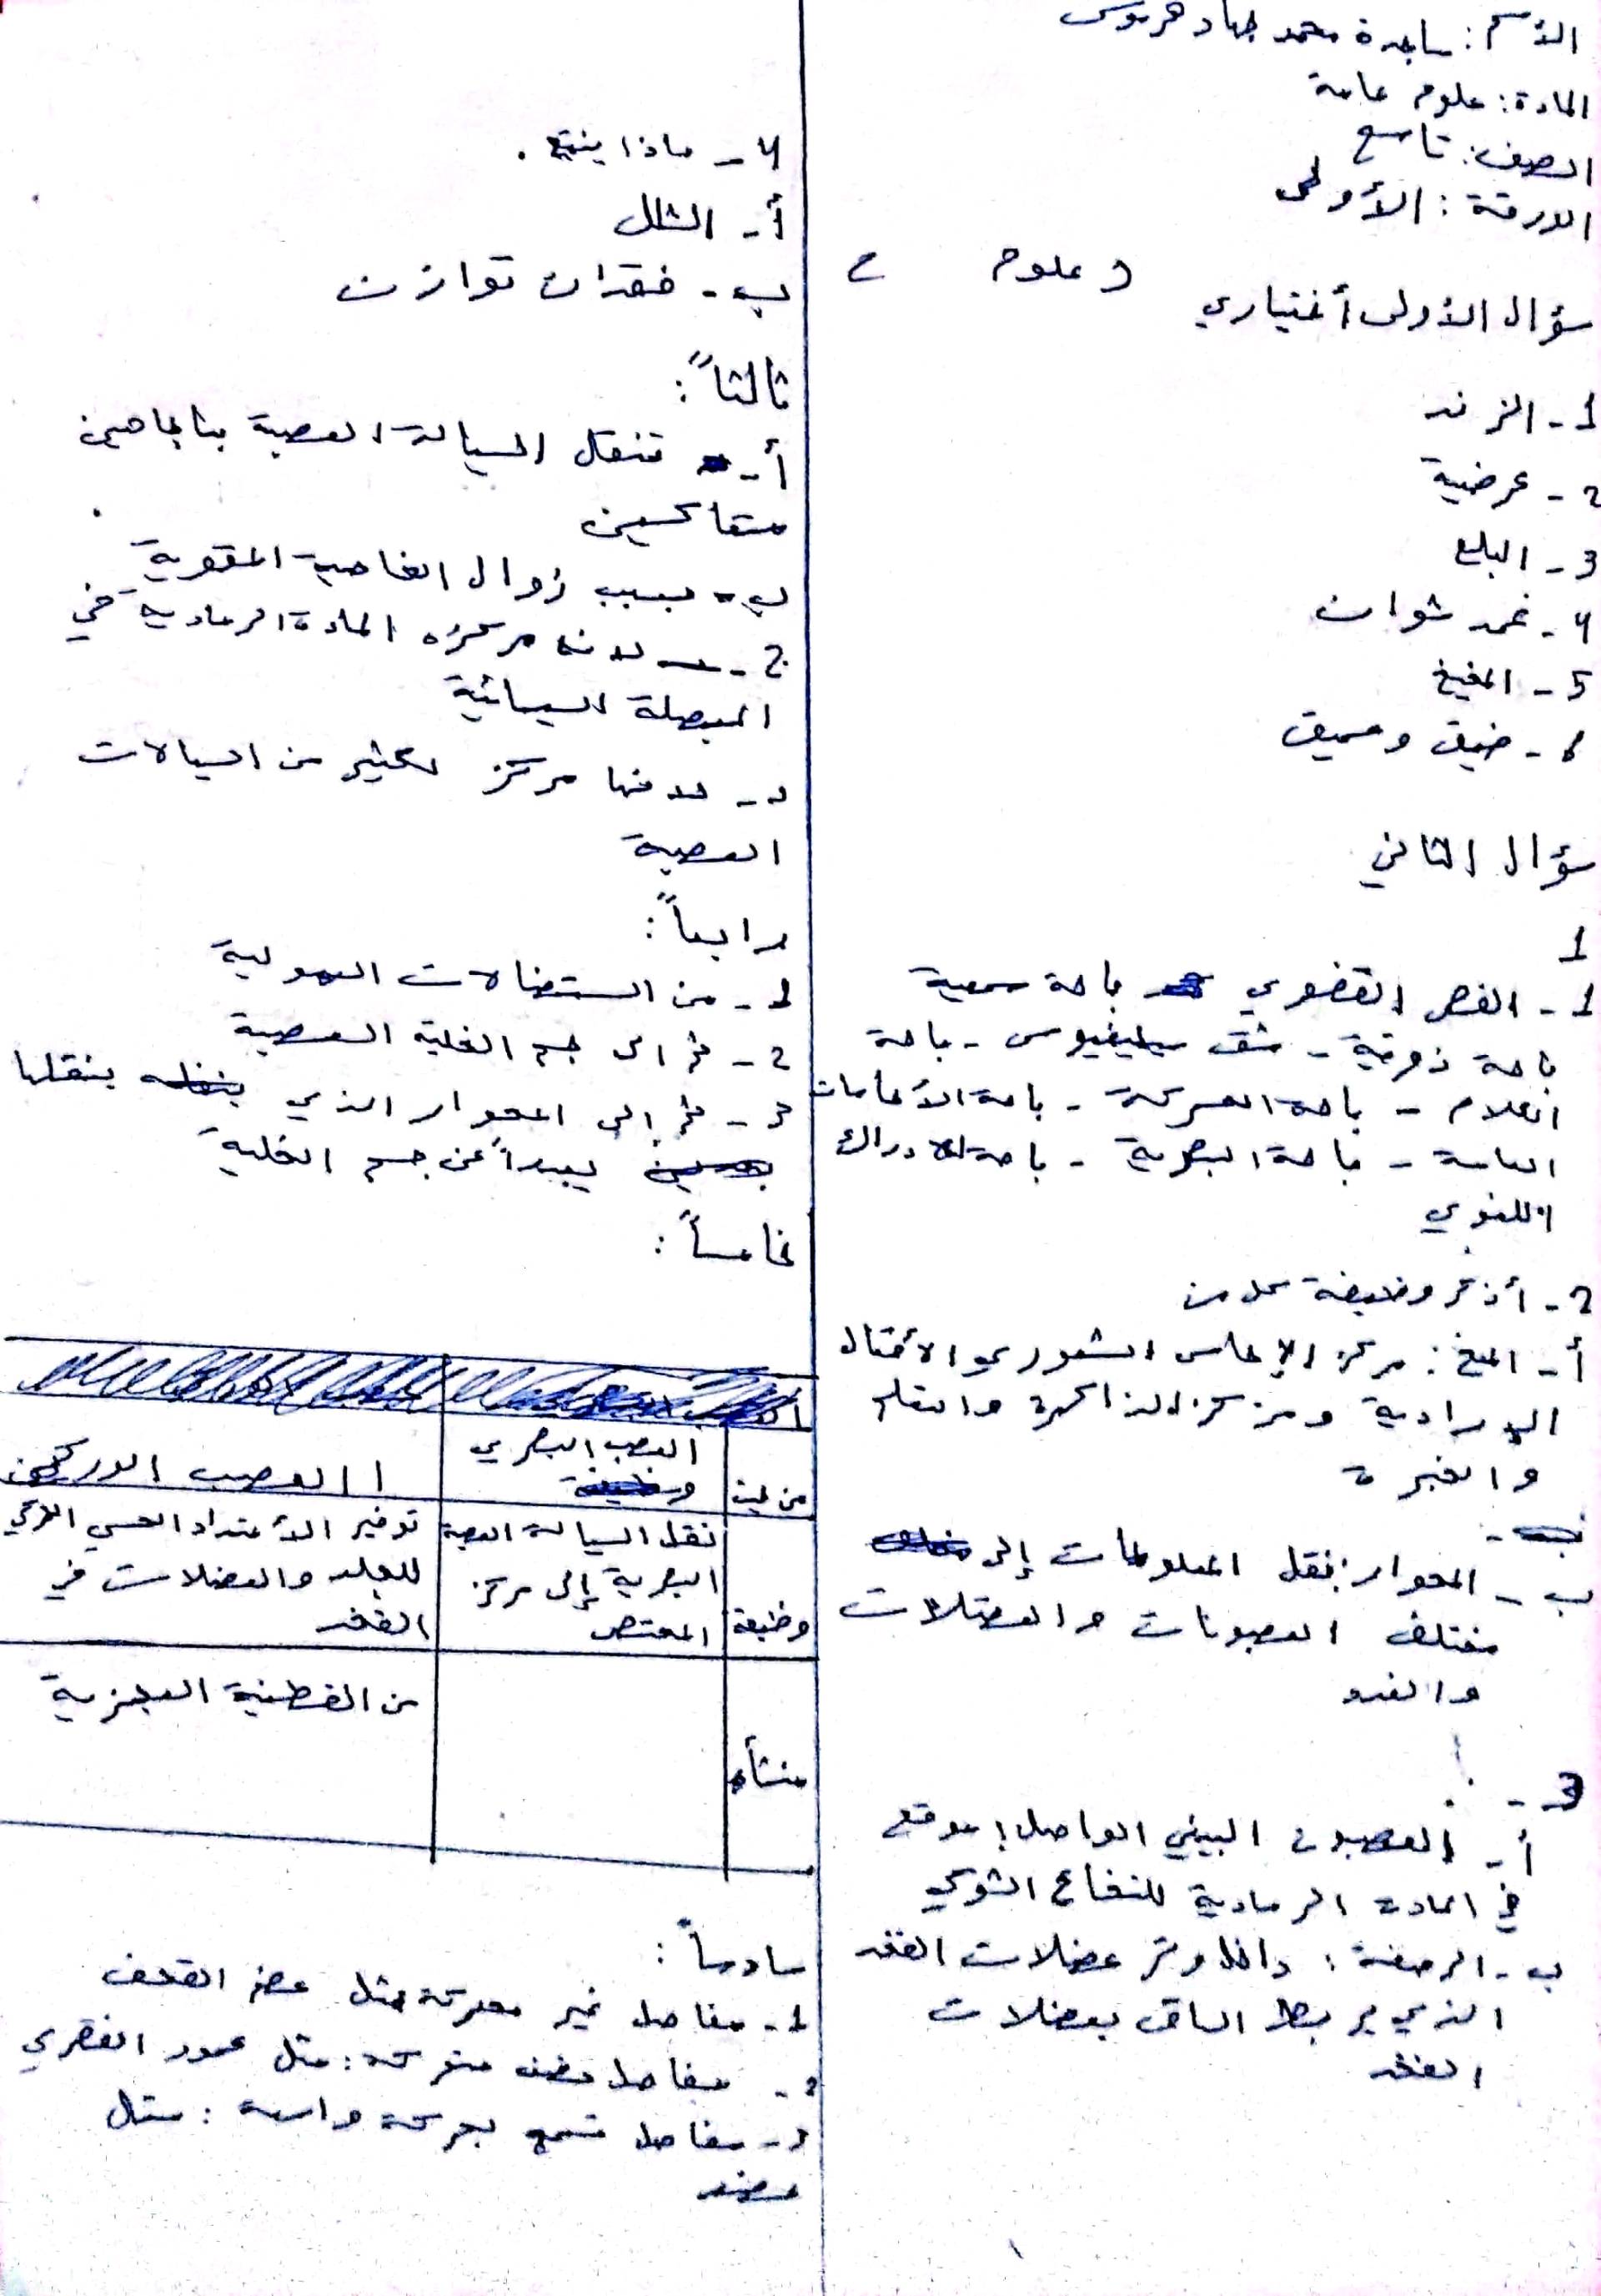 الأسم: ساجدة محمد جهاد
المادة: علوم عامة
الصف: تاسع
الورقة: الأولى
علوم
سؤال الأولى أختياري
1- الزند
2- عرضية
3- البلع
4- غمد شوان
5- المخيخ
6- ضيق وعميق
سؤال الثاني
1
1- الفص القضوي باحة سمعية
باحة ذوقية - شق سيلفيوس - باحة
الكلام - باحة الحركة - باحة
العامة - باحة البصرية - باحة الادراك
اللغوي
2- أذكر وظيفة كل من
أ- المخ: مركز الإحاس الشعوري والأفتال
الإرادية ومركز الذاكرة والتعلم
والخبرة
ب- المحوار: نقل المعلومات إلى
مختلف العصبونات والعضلات
والغدد
3-
أ- العصبون البيني الواصل: موقع
في المادة الرمادية للنخاع الشوكي
ب- الرضفة: داخل وتر عضلات الفخذ
الذي يربط الساق بعضلات
الفخذ
4- ماذا ينتج.
أ- الشلل
ب- فقدان توازن
ثالثاً:
أ- تنقل السيالة العصبية بتاجاهين
متعاكسين
ب- بسبب زوال الخاصية المقوية
ج- لانها مركزه المادة الرمادية في
البصلة السيسائية
د- لانها مركز لكثير من السيالات
العصبية
رابعاً:
1- من الستضالات الهيولية
2- ثم الى جسم الخلية العصبية
3- ثم إلى المحوار الذي ينقلها
بعيداً عن جسم الخلية
خامساً:
من حيث | العصب البصري | العصب الوركي
وظيفة | نقل السيالة العصبية البصرية إلى مركز المختص | توفير الأمتداد الحسي الحركي للجلد والعضلات في الفخذ
منشأه | | من القطنية العجزية
سادساً:
1- مفاصل غير محركة مثل عضم القحف
2- مفاصل نصف متحركة: مثل عمود الفقري
3- مفاصل تسمح بحركة واسعة: مثال
عضد